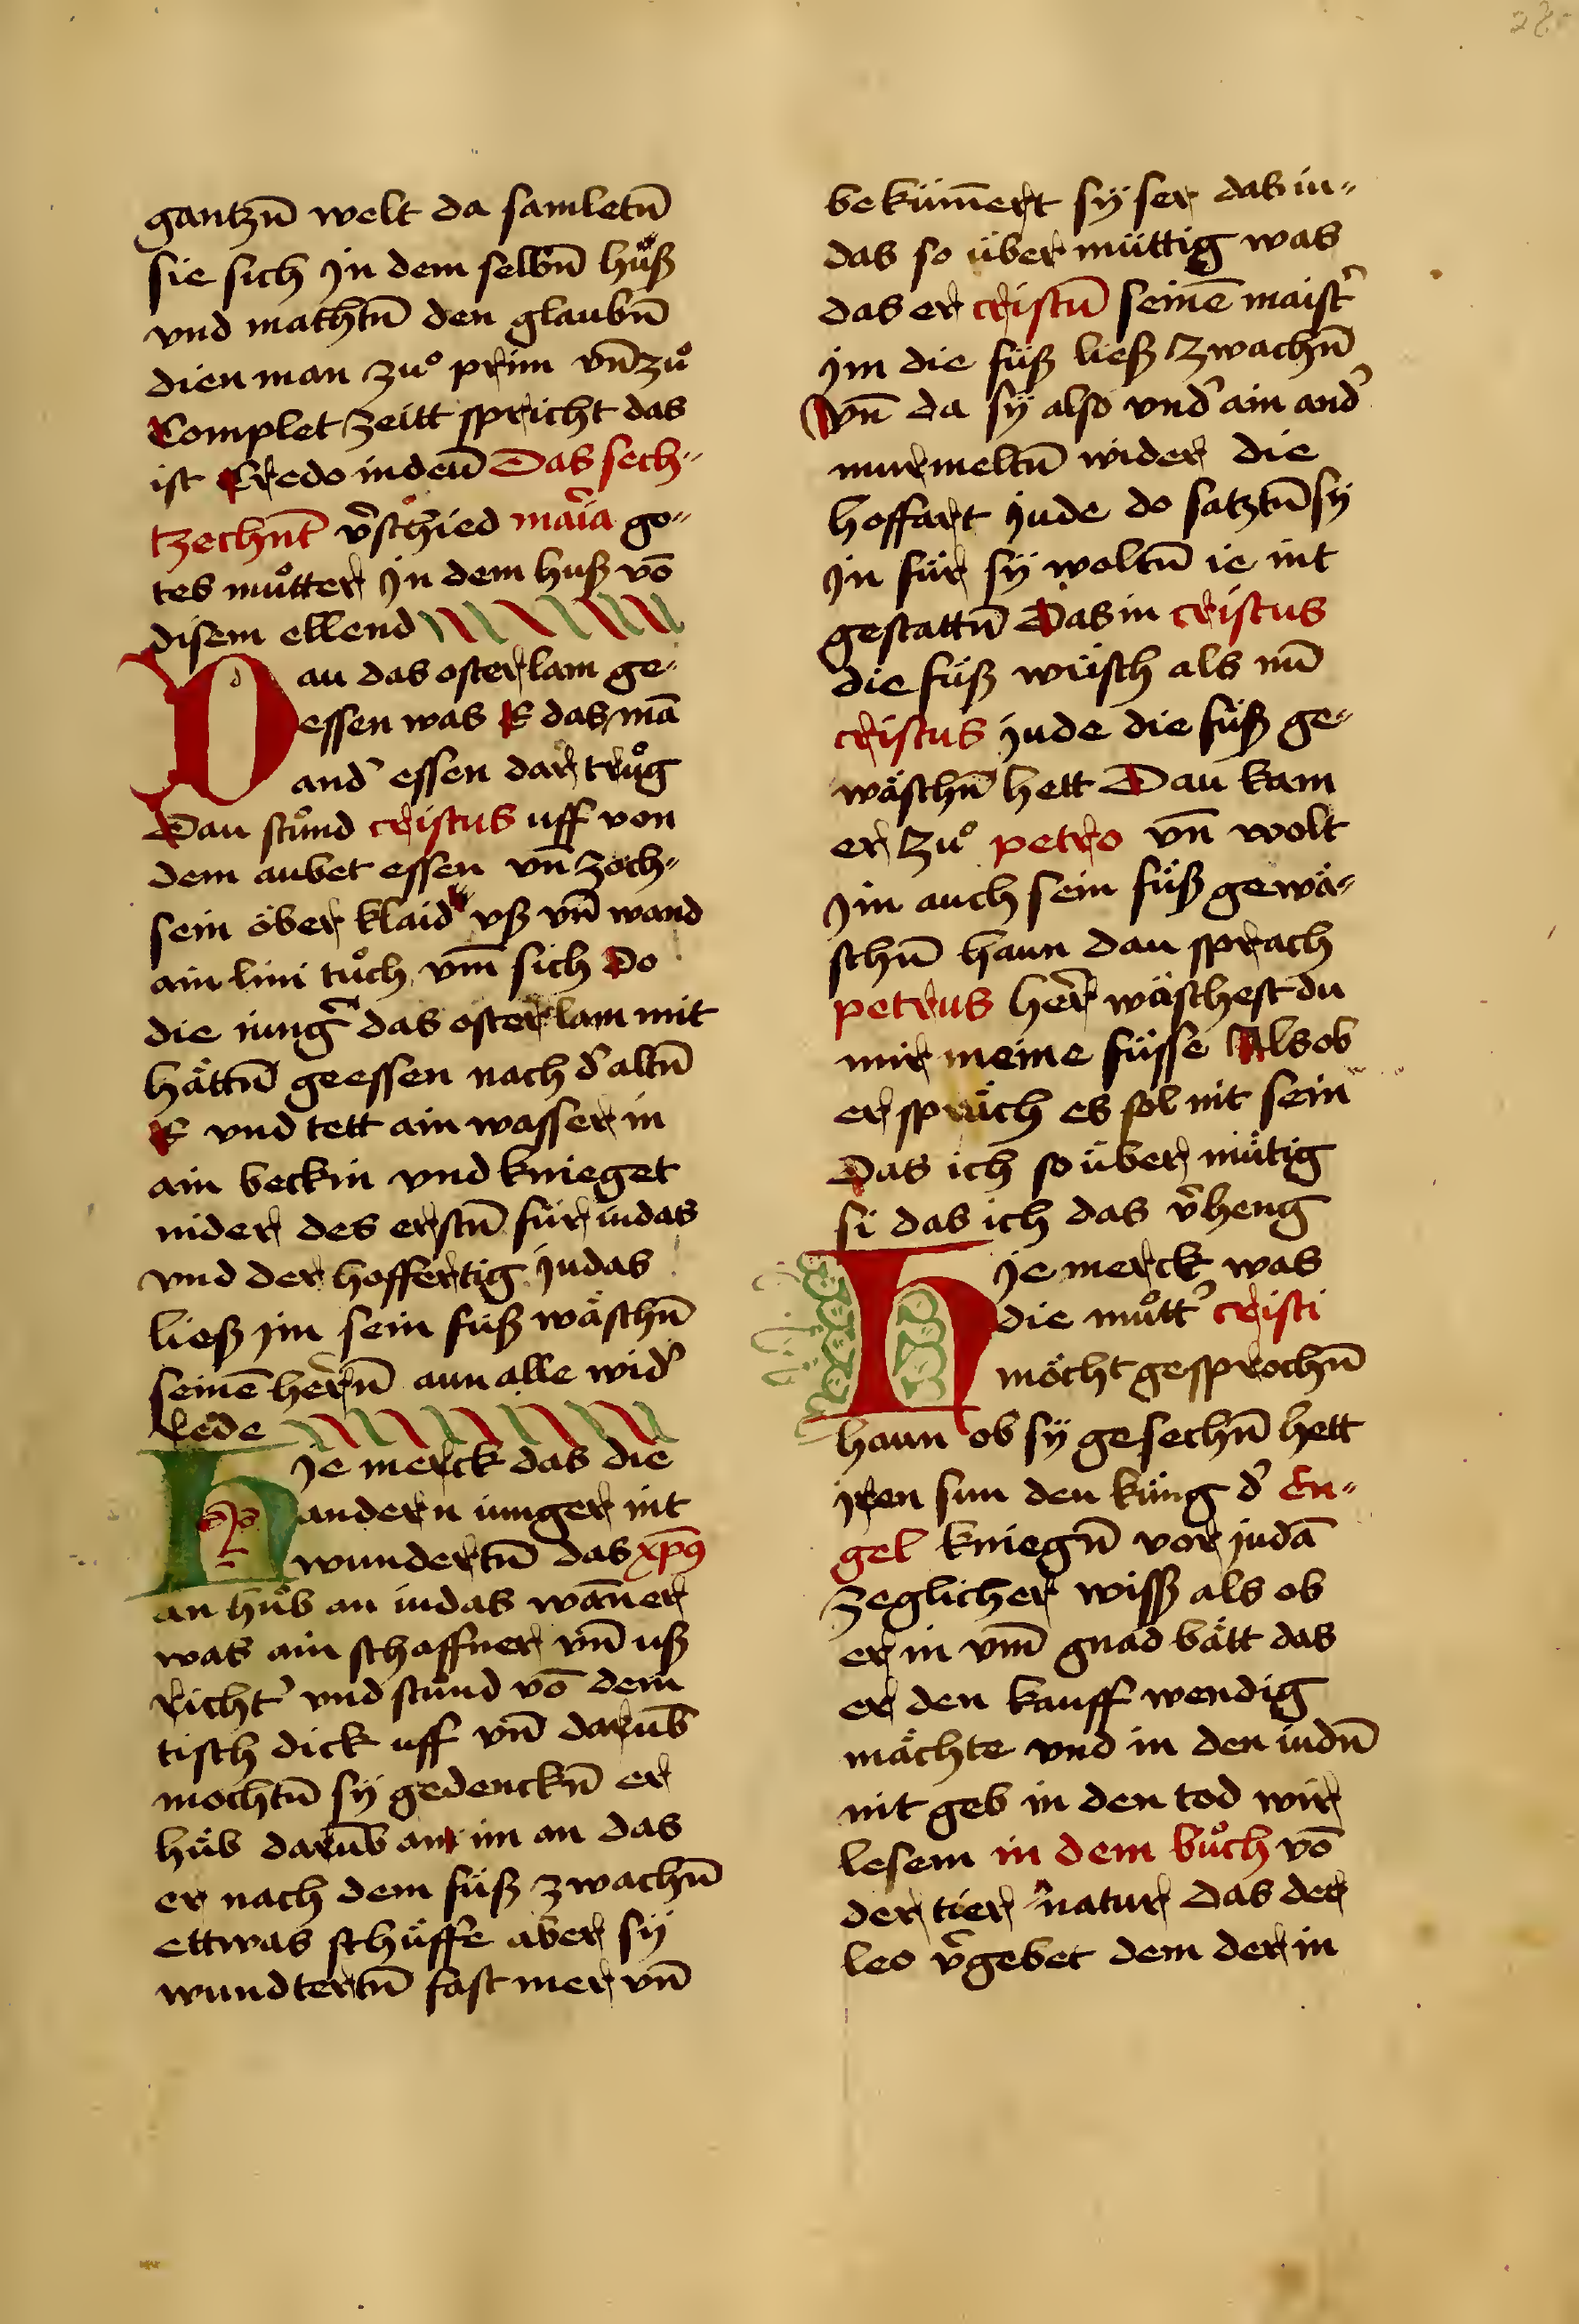 gantzn̄ welt da samletn̄
sie sich Jn dem selbn̄ huͤß
vnd machtn̄ den glaubn̄
dien man zuͦ prim vn̄ zuͦ
Complet zeitt spricht das
ist Credo in deū Das sech„
tzechnt v̄schied maria go„
tes muͦtter Jn dem huß vō
disem ellend
Dau das osterlam ge„
essen was E das mā
and’ essen dar truͦg
Dau stuͦnd cristus uff von
dem aubet essen vn̄ zoch„
sein ober klaid vß vn̄ wand
ain lini tuͦch vm̄ sich Do
die iungr̄ das osterlam mit
hättn̄ geessen nach d’ altn̄
E vnd tett ain wasser in
ain beckin vnd knieget
nider des erstn̄ für iudas
vnd der hoffertig judas
ließ jm sein füß wäschn̄
seinē hern̄ aun alle wid’
Rede
HJe merck das die
andern iunger nit
wundertn̄ das xp̄s
an huͤb an iudas wāner
was ain schaffner vn̄ uß
richt’ vnd stuͦnd vō dem
tisch dick uff vn̄ darūb
mochtn̄ sÿ gedenckn̄ er
huͤb darūb an im an das
er nach dem füß zwachn̄
ettwas schüffe aber sÿ
wundtertn̄ fast mer vn̄
bekūmert sÿ ser das iu„
das so über müttig was
das er cristū seinē maist’
jm die füß ließ zwachn̄
Vn̄ da sÿ also vnd’ ain and’
murmeltn̄ wider die
hoffart jude do satztn̄ sÿ
Jn für sÿ woltn̄ ie nit
gestattn̄ Das in cristus
die füß wüsch als nū
cristus jude die füß ge„
wäschn̄ hett Dau kam
er zuͦ petro vn̄ wolt
Jm auch sein füß gewä„
schn̄ haun dau sprach
petrus her wäschest du
mir meine füsse Als ob
er spräch es sol nit sein
Das ich so über mütig
si das ich das v̄heng
HJe merck was
die muͦtt’ cristi
möcht gesprochn̄
haun ob sÿ gesechn̄ hett
jren sun den küng d’ En„
gel kniegn̄ vor judā
zeglicher wiß als ob
er in vm̄ gnad bätt das
er den kauff wendig
mächte vnd in den iudn̄
nit geb in den tod wir
lesem in dem buͦch vō
der tier natur das der
leo v̄gebet dem der in